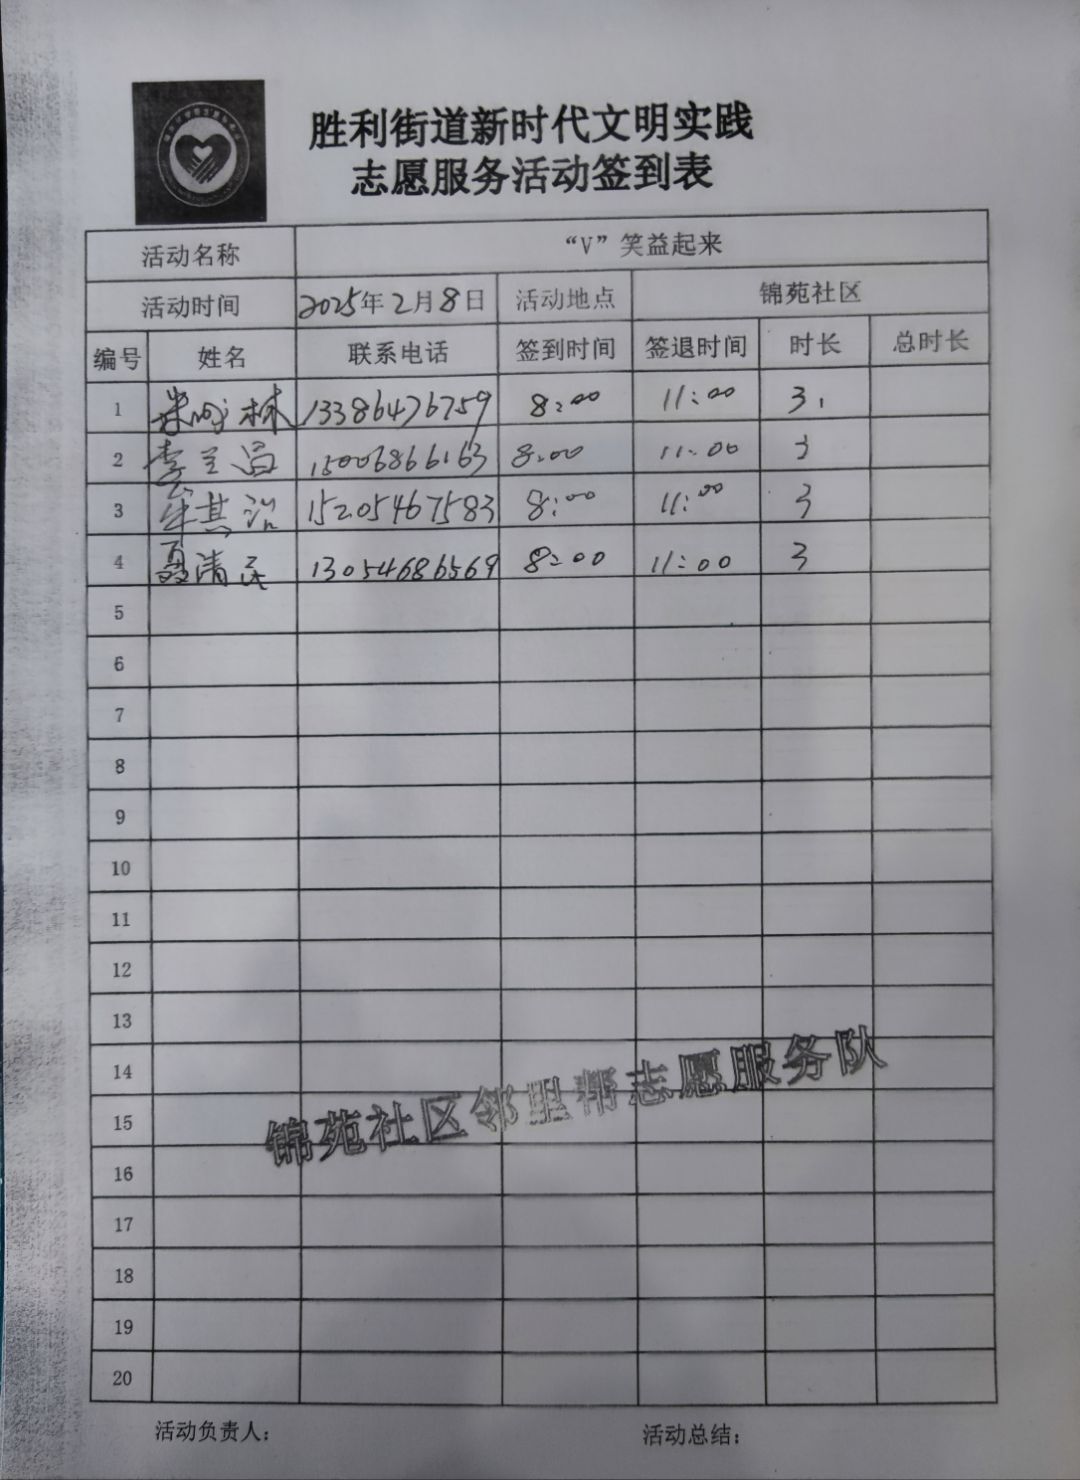 胜利街道新时代文明实践
志愿服务活动签到表
活动名称 “V”笑益起来
活动时间 2025年2月8日 活动地点 锦苑社区
编号 姓名 联系电话 签到时间 签退时间 时长 总时长
1 林 13386476759 8:00 11:00 3
2 李兰昌 15006866163 8:00 11:00 3
3 牟其治 15205467583 8:00 11:00 3
4 聂清民 13054686569 8:00 11:00 3
5
6
7
8
9
10
11
12
13
14
15
16
17
18
19
20
锦苑社区邻里帮志愿服务队
活动负责人: 活动总结: